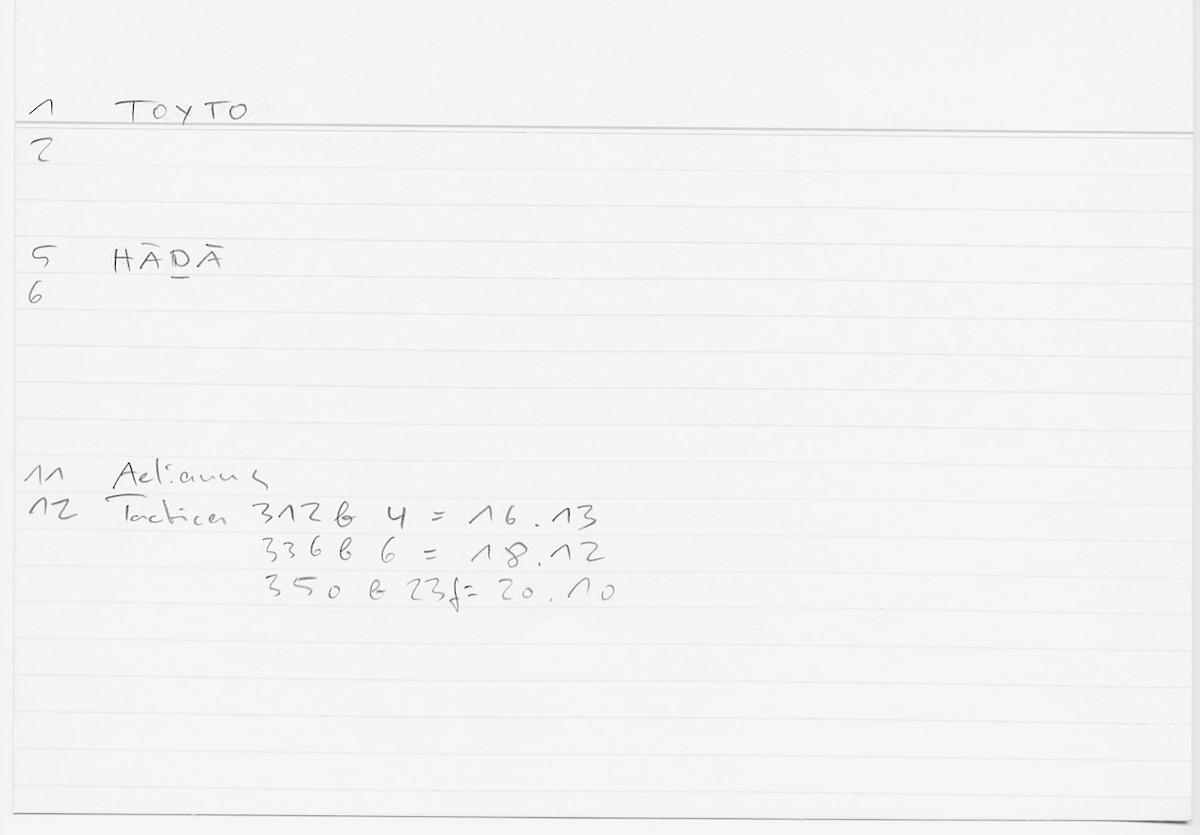 1 TOYTO
2
5 HĀḎĀ
6
11 Aelianus
12 Tactica 312 b 4 = 16.13
336 b 6 = 18.12
350 b 23f = 20.10